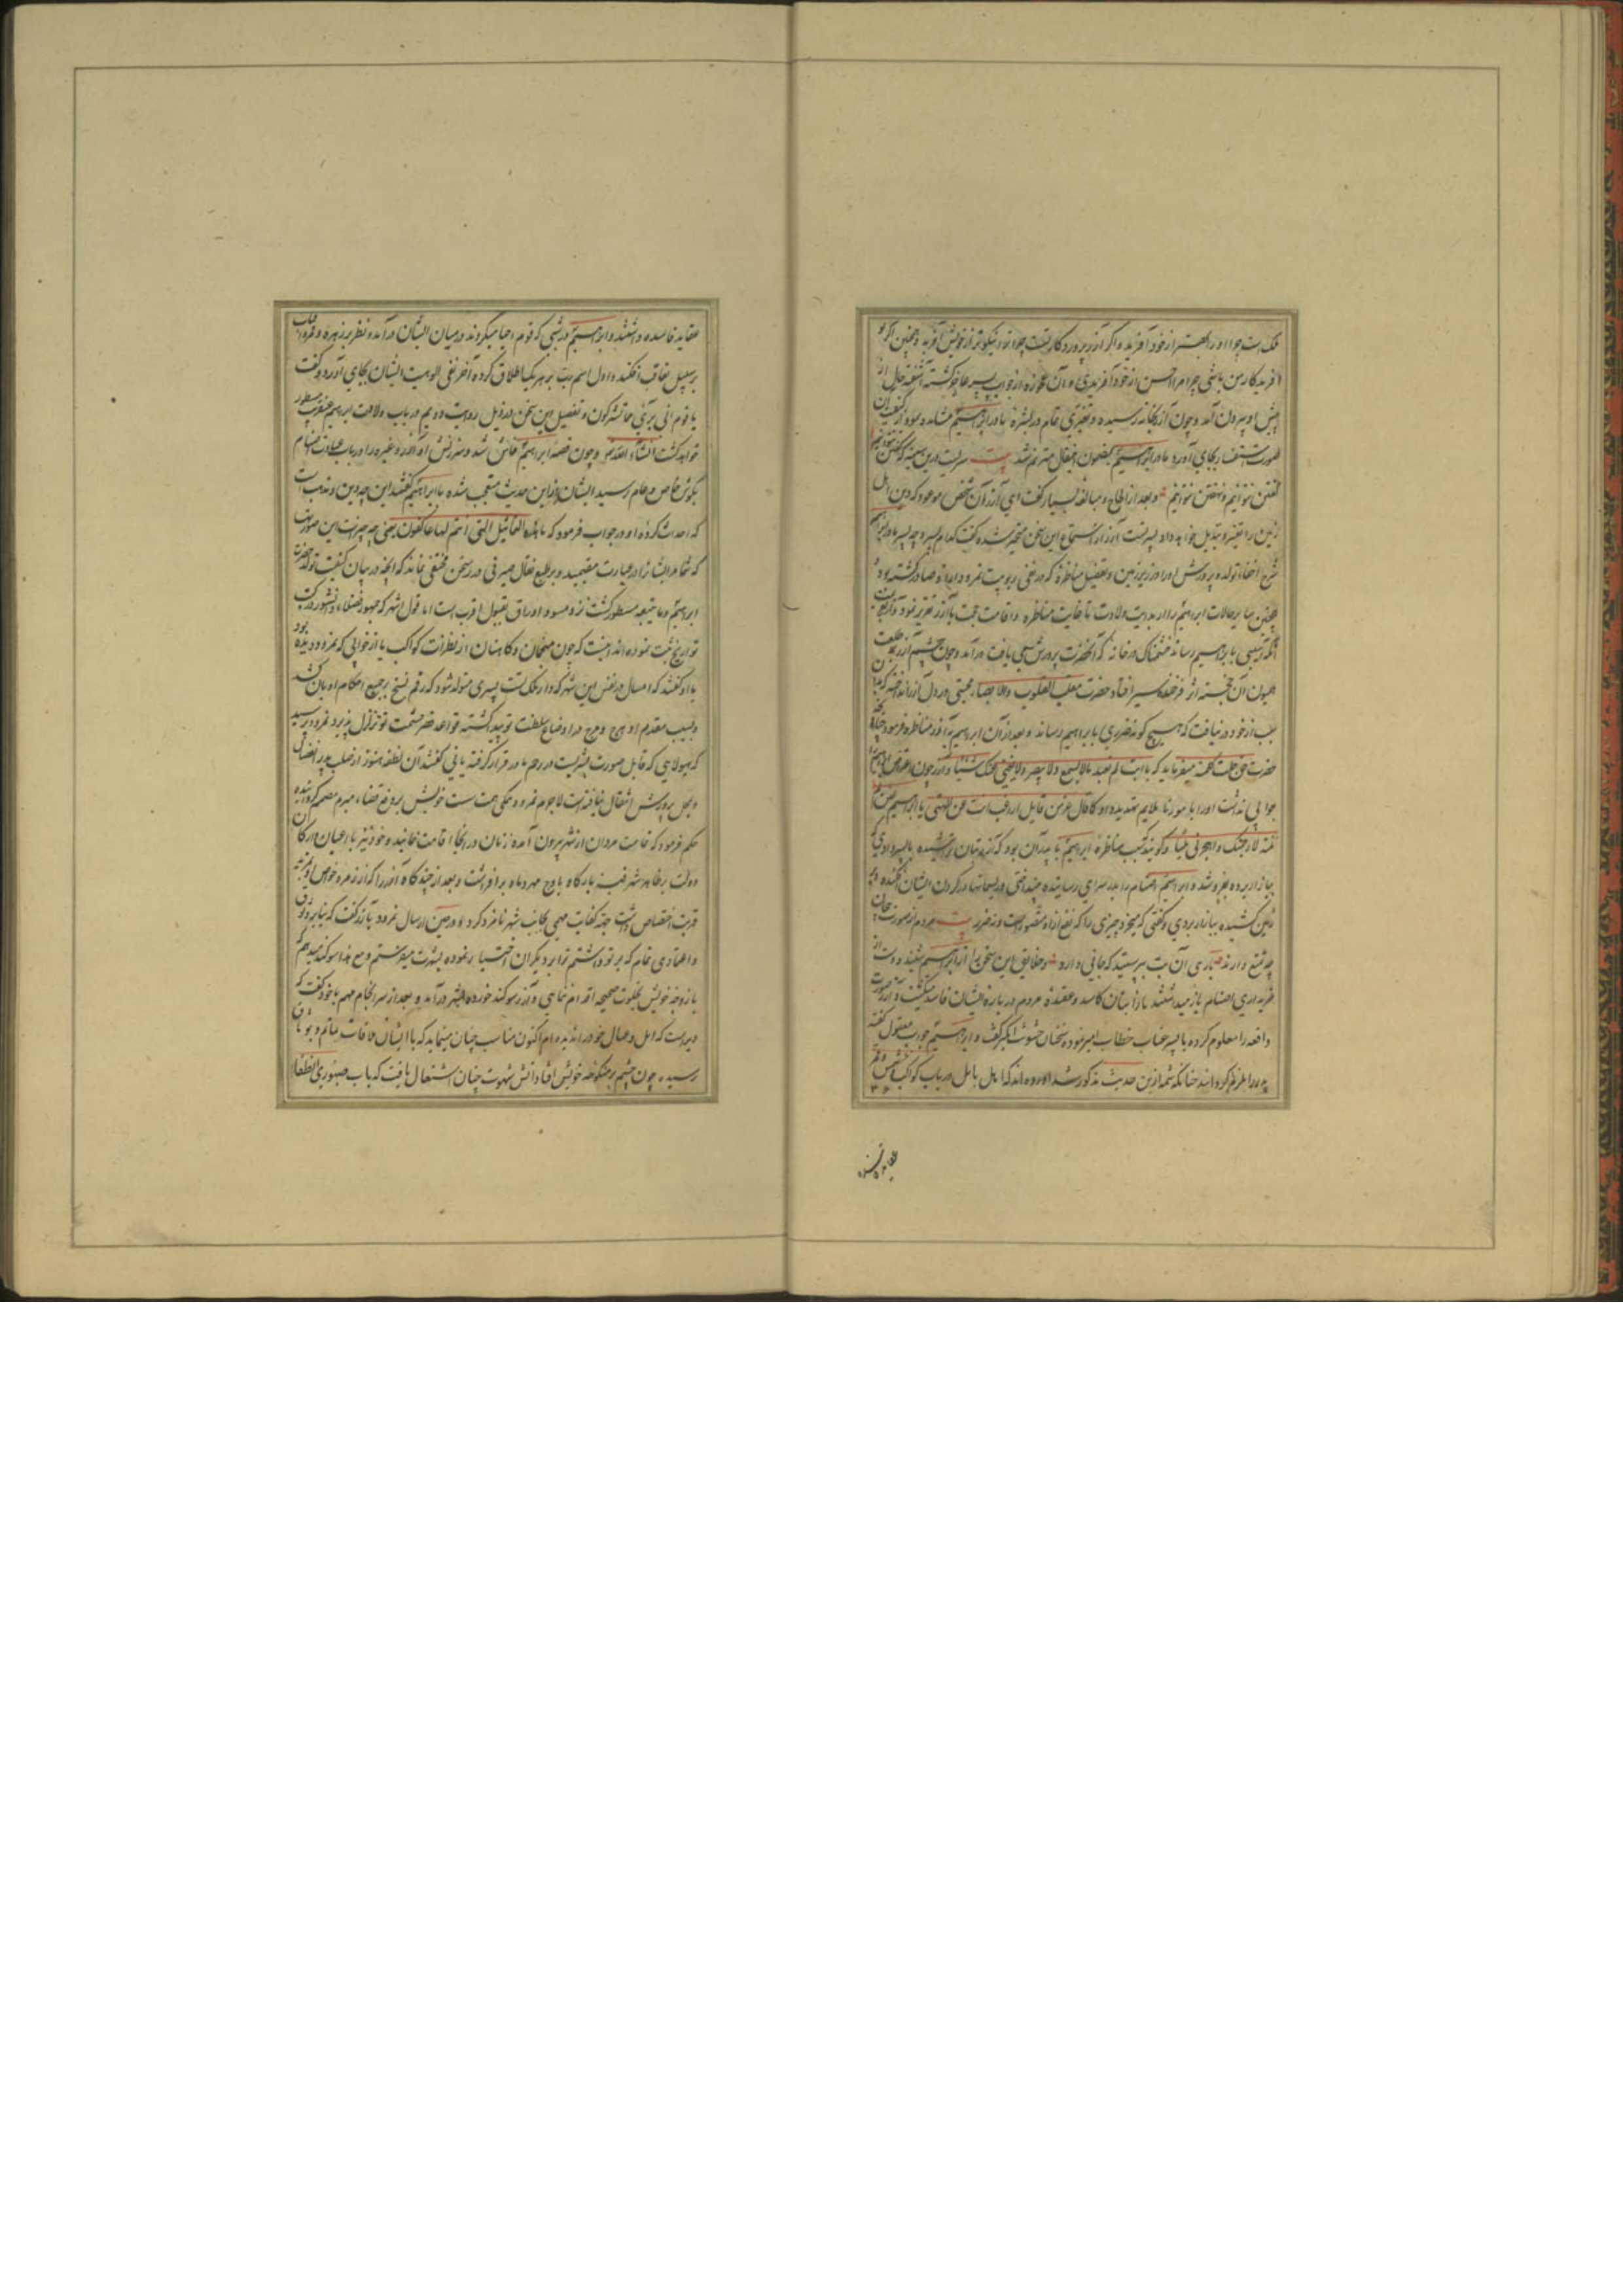 تست چرا او را بهتر از خود آفرید و اگر آزر پروردگار تست چرا ترا نیکوتر از خویش آفرید و همچنین اگر تو
آفریدکار من باشی چرا مرا احسن از خود آفریدی و آن عجوزه از جواب پسر عاجز کشته آشفته حال از
پیش او بیرون آمد و چون آزر بخانه رسیده و تغیری تمام در بشره مادر ابراهیم مشاهده نمود از کیفیت آن
صورت استفسار بجای آورد مادر ابراهیم بمضمون این مقال مترنم شد بیت سریست درین سینه که گفتن نتوانیم
گفتن نتوانیم و نهفتن نتوانیم و بعد از الحاح و مبالغه بسیار گفت ای آزر آن شخص موعود که دین اهل
زمین را تغییر و تبدیل خواهد داد پسر تست آزر از استماع این سخن متحیر شده گفت کدام پسر و چه پسر مادر ابراهیم
شرح اخفاء تولد و پرورش او را در زیر زمین و تفصیل مناظره که در نفی ربوبیت نمرود از او صادر گشته بود
همچنین سایر حالات ابراهیم را از بدایت ولادت تا غایت مناظره و اقامت حجت با آزر تقریر نمود
آنکه آسیبی بابراهیم رساند خشمناک در خانه که آنحضرت پرورش می یافت در آمد و چون چشم آزر بر طلعت
همیون آن خجسته اثر فرخنده سیر افتاد حضرت مقلب القلوب والابصار محبتی در دل آزر انداخت که
سبب از خود در نیافت که هیچ گونه ضرری بابراهیم رساند و بعد از آن ابراهیم با آزر مناظره فرمود چنانکه
حضرت حق جلت کلمته میفرماید که یا ابت لم تعبد مالا یسمع ولا یبصر ولا یغنی عنک شیئا و آزر چون
جوابی نداشت او را بامور نا ملایم تهدید داد کما قال عز من قایل اراغب انت عن الهتی یا ابراهیم لئن لم
تنته لارجمنک واهجرنی ملیا و گویند که سبب مناظره ابراهیم با پدر آن بود که آزر بتان تراشیده بپسر دادی تا
ببازار برده بفروشد و ابراهیم اصنام را بدر سرای رسانیده بینداختی و ریسمانها در گردن ایشان افکنده بر
زمین کشیده ببازار بردی و گفتی که میخرد چیزی را که نفع از او متصور است و نه ضرر بیت مردم از صورت بیجان
چه تمتع دارند باری آن بت بپرستید که جانی دارد و خلایق این سخن را از ابراهیم شنیده دست از
خریداری اصنام باز میداشتند بازار بتان کاسد و عقیده مردم در باره ایشان فاسد میگشت و آزر صورت
واقعه را معلوم کرده با پسر عتاب خطاب آمیز نموده سخنان خشونت انگیز گفت و ابراهیم جواب معقول گفته
پدر را ملزم گردانید چنانکه شمه ازین حدیث مذکور شد آورده اند که اهل بابل در باب کواکب شمس و قمر
عقاید فاسده
عقاید فاسده داشتند و ابراهیم در شبی که قوم احیا میکردند در میان ایشان در آمده نظر بر زهره و قمر و آفتاب
بر سبیل تعاقب افکند و اول اسم رب بر هر یک اطلاق کرده آخر نفی الوهیت ایشان بجای آورد و گفت
یا قوم انی بریء مما تشرکون و تفصیل این سخن در ذیل روایت دویم در باب ولادت ابراهیم عنقریب مسطور
خواهد گشت انشاء الله تعالی و چون قصه ابراهیم فاش شد و سرزنش او آزر و غیره را در باب عبادت اصنام
بگوش خاص و عام رسید ایشان از این حدیث متعجب شده با ابراهیم گفتند این چه دین و مذهب است
که احداث کرده او در جواب فرمود که ما هذه التماثیل التی انتم لها عاکفون یعنی چه چیز است این صورتها
که شما مر ایشانرا در عبادت مقیمید و بر طبع نقال صیرفی در سخن مختفی نماند که آنچه در بیان کیفیت تولد حضرت
ابراهیم و ما یتبعه مسطور گشت نزد مسود اوراق بقبول اقرب است اما قول اشهر که جمهور فضلاء دانشور در کتب
تواریخ ثبت نموده اند اینست که چون منجمان و کاهنان از نظرات کواکب یا از خوابی که نمرود دیده بود
با او گفتند که امسال در نفس این شهر که دار ملک تست پسری متولد شود که رقم نسخ بر جمیع احکام ادیان کشد
و بسبب مقدم او هرج و مرج در اوضاع سلطنت تو پیدا گشته قواعد قصر حشمت تو تزلزل پذیرد نمرود پرسید
که هیولایی که قابل صورت بشریت در رحم مادر قرار گرفته یا نی گفتند آن نطفه هنوز از صلب پدر انفصال
و بمحل پرورش انتقال نیافته است لاجرم نمرود همگی همت پست خویش بر دفع قضاء مبرم مصمم گردانیده
حکم فرمود که تمامت مردان از شهر بیرون آمده زنان در آنجا اقامت نمایند و خود نیز با اعیان و ارکان
دولت بر ظاهر شهر قبه بارگاه باوج مهر و ماه بر افراشت و بعد از چند گاه آزر را که از زمره خواص او بمزید
قربت اختصاص داشت جهة کفایت مهمی بجانب شهر نامزد کرد و در حین ارسال نمرود بآزر گفت که بنابر وثوق
و اعتمادی تمام که بر تو داشتم ترا بر دیگران اختیار نموده بشهرت میفرستم و مع هذا سوگند میدهم که
با زوجه خویش بخلوت صحیحه اقدام ننمایی و آزر سوگند خورده بشهر در آمد و بعد از سر انجام مهم با خود گفت که
دیریست که اهل و عیال خود را ندیده ام اکنون مناسب چنان مینماید که با ایشان ملاقات نمایم و بوثاق
رسیده چون چشم بر منکوحه خویش افتاد آتش شهوت چنان اشتعال یافت که بآب صبوری انطفا